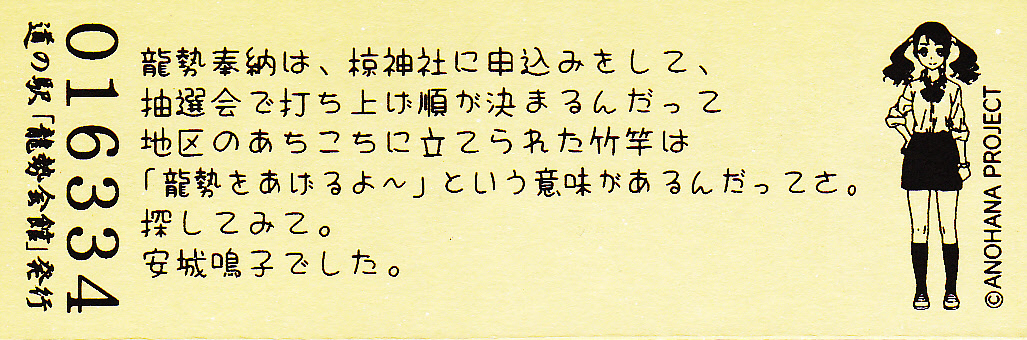 龍勢奉納は、椋神社に申込みをして、
抽選会で打ち上げ順が決まるんだって
地区のあちこちに立てられた竹竿は
「龍勢をあげるよ～」という意味があるんだってさ。
探してみて。
安城鳴子でした。
016334
道の駅「龍勢会館」発行
©ANOHANA PROJECT